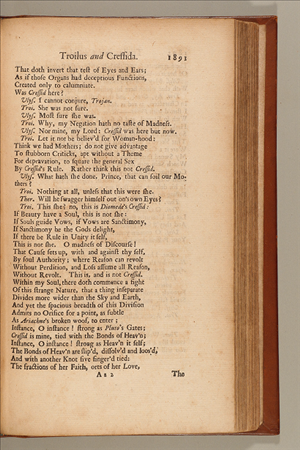 Troilus and Cressida. 1891
That doth invert that test of Eyes and Ears;
As if those Organs had deceptious Functions,
Created only to calumniate.
Was Cressid here?
Ulys. I cannot conjure, Trojan.
Troi. She was not sure.
Ulys. Most sure she was.
Troi. Why, my Negation hath no taste of Madness.
Ulys. Nor mine, my Lord: Cressid was here but now.
Troi. Let it not be believ'd for Woman-hood:
Think we had Mothers; do not give advantage
To stubborn Criticks, apt without a Theme
For depravation, to square the general Sex
By Cressid's Rule. Rather think this not Cressid.
Ulys. What hath she done, Prince, that can soil our Mo-
thers?
Troi. Nothing at all, unless that this were she.
Ther. Will he swagger himself out on's own Eyes?
Troi. This she? no, this is Diomede's Cressid:
If Beauty have a Soul, this is not she:
If Souls guide Vows, if Vows are Sanctimony,
If Sanctimony be the Gods delight,
If there be Rule in Unity it self,
This is not she. O madness of Discourse!
That Cause sets up, with and against thy self,
By foul Authority; where Reason can revolt
Without Perdition, and Loss assume all Reason,
Without Revolt. This is, and is not Cressid.
Within my Soul, there doth commence a fight
Of this strange Nature, that a thing inseparate
Divides more wider than the Sky and Earth,
And yet the spacious breadth of this Division
Admits no Orifice for a point, as subtle
As Ariachne's broken woof, to enter;
Instance, O instance! strong as Pluto's Gates;
Cressid is mine, tied with the Bonds of Heav'n;
Instance, O instance! strong as Heav'n it self;
The Bonds of Heav'n are slip'd, dissolv'd and loos'd,
And with another Knot five finger'd tied:
The fractions of her Faith, orts of her Love,
A a 2 The